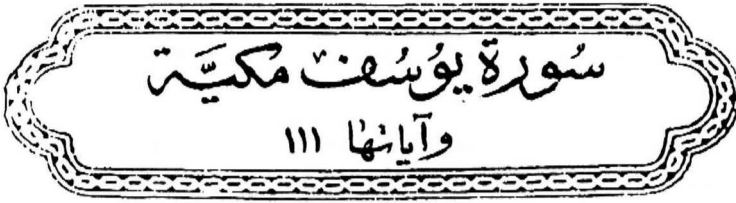 سُورة يوُسُف مكيَّة
وآياتها ١١١